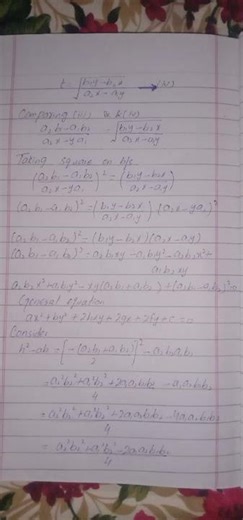 t = √(b₁y-b₂x / a₂x-a₁y) → (iv)
Comparing (iii) & (iv)
a₂b₁-a₁b₂ / a₂x-ya₁ = √(b₁y-b₂x / a₂x-a₁y)
Taking square on b/s
(a₂b₁-a₁b₂ / a₂x-ya₁)² = (b₁y-b₂x / a₂x-a₁y)
(a₂b₁-a₁b₂)² = (b₁y-b₂x / a₂x-a₁y) (a₂x-ya₁)²
(a₂b₁-a₁b₂)² = (b₁y-b₂x)(a₂x-a₁y)
(a₂b₁-a₁b₂)² = a₂b₁xy-a₁b₁y²-a₂b₂x²+
a₁b₂xy
a₂b₂x²+a₁b₁y²-xy(a₂b₁+a₁b₂)+(a₂b₁-a₁b₂)²=0
General equation
ax²+by²+2hxy+2gx+2fy+c=0
Consider
h²-ab = [-(a₂b₁+a₁b₂) / 2]² - a₂b₂a₁b₁
= a₂²b₁²+a₁²b₂²+2a₁a₂b₁b₂ / 4 - a₁a₂b₁b₂
= a₂²b₁²+a₁²b₂²+2a₁a₂b₁b₂-4a₁a₂b₁b₂ / 4
= a₂²b₁²+a₁²b₂²-2a₁a₂b₁b₂ / 4